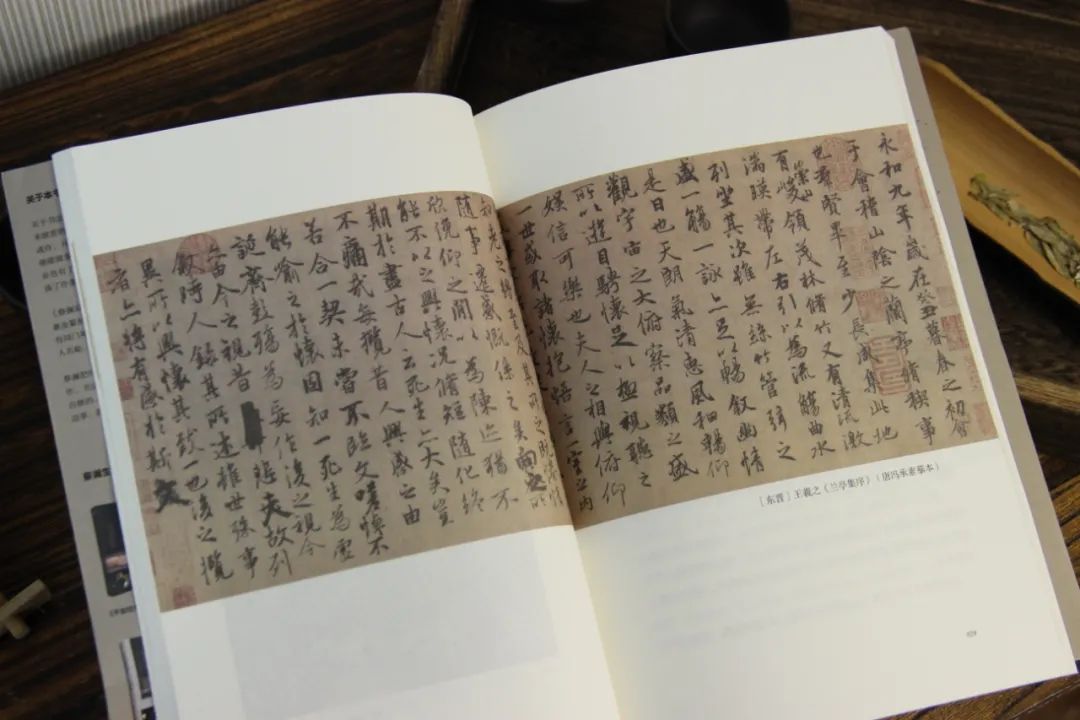 永和九年歲在癸丑暮春之初會
于會稽山陰之蘭亭脩稧事
也羣賢畢至少長咸集此地
有崇山峻領茂林脩竹又有清流激
湍暎帶左右引以為流觴曲水
列坐其次雖無絲竹管弦之
盛一觴一詠亦足以暢敘幽情
是日也天朗氣清惠風和暢仰
觀宇宙之大俯察品類之盛
所以遊目騁懷足以極視聽之
娛信可樂也夫人之相與俯仰
一世或取諸懷抱悟言一室之內
知老之將至及其所之既惓情
隨事遷感慨係之矣向之所
欣俛仰之閒以為陳迹猶不
能不以之興懷況脩短隨化終
期於盡古人云死生亦大矣豈
不痛哉每攬昔人興感之由
若合一契未嘗不臨文嗟悼不
能喻之於懷固知一死生為虛
誕齊彭殤為妄作後之視今
亦由今之視昔悲夫故列
敘時人錄其所述雖世殊事
異所以興懷其致一也後之攬
者亦將有感於斯文
［东晋］王羲之《兰亭集序》（唐冯承素摹本）
关于本书